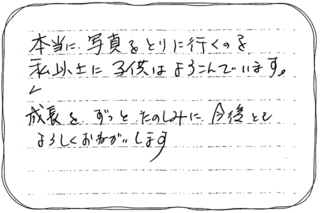 本当に 写真をとりに行くのを
私以上に 子供は よろこんでいます。
成長を ずっと たのしみに 今後とも
よろしくおねがいします